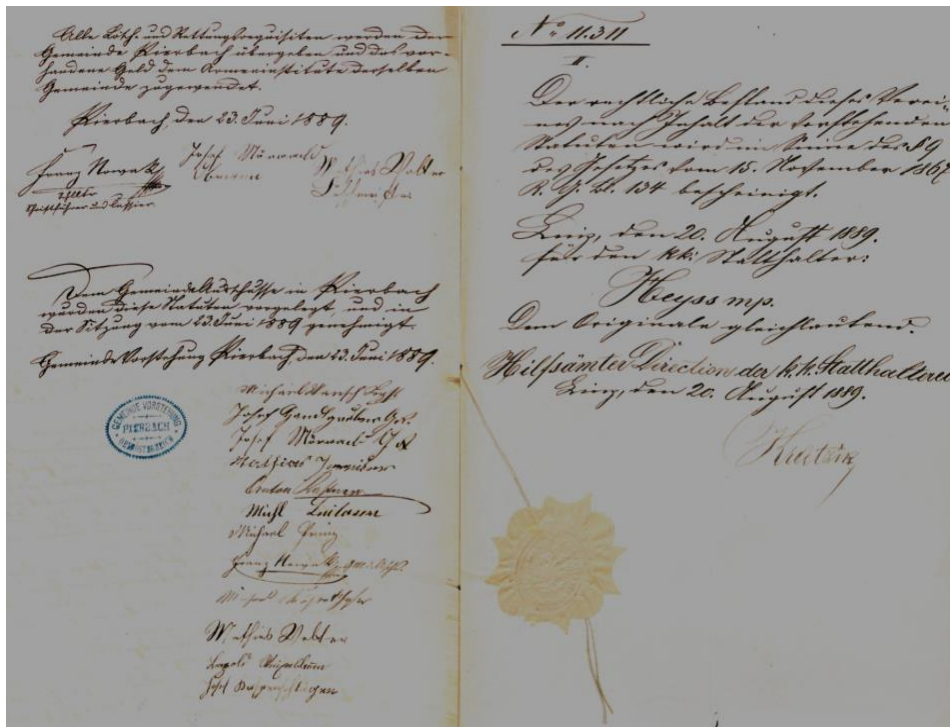 Alle Lösch und Rettungsrequisiten werden der
Gemeinde Pierbach übergeben und das vor-
handene Geld dem Armeninstitute derselben
Gemeinde zugewendet.
Pierbach, den 23. Juni 1889.
Franz Nowak
Josef
Obmann
Mathias
Schriftführer und Cassier
Dem Gemeinde Ausschusse in Pierbach
wurden diese Statuten vorgelegt und in
der Sitzung vom 23 Juni 1889 genehmigt.
Gemeinde Vorstehung Pierbach, den 23. Juni 1889.
GEMEINDE VORSTEHUNG
PIERBACH
Josef
Josef
Mathias
Anton
Michl
Michael Prinz
Franz Nowak
Mathias
Leopold
Josef
No 11.311
II.
Der rechtliche Bestand dieses Verei-
nes nach Inhalt der vorstehenden
Statuten wird im Sinne des § 9
des Gesetzes vom 15. November 1867
R. G. Bl. 134 bescheinigt.
Linz, den 20. August 1889.
Für den kk: Statthalter:
Heyss mp.
Dem Originale gleichlautend.
Hilfsämter Direction der k. k. Statthalterei
Linz, den 20. August 1889.